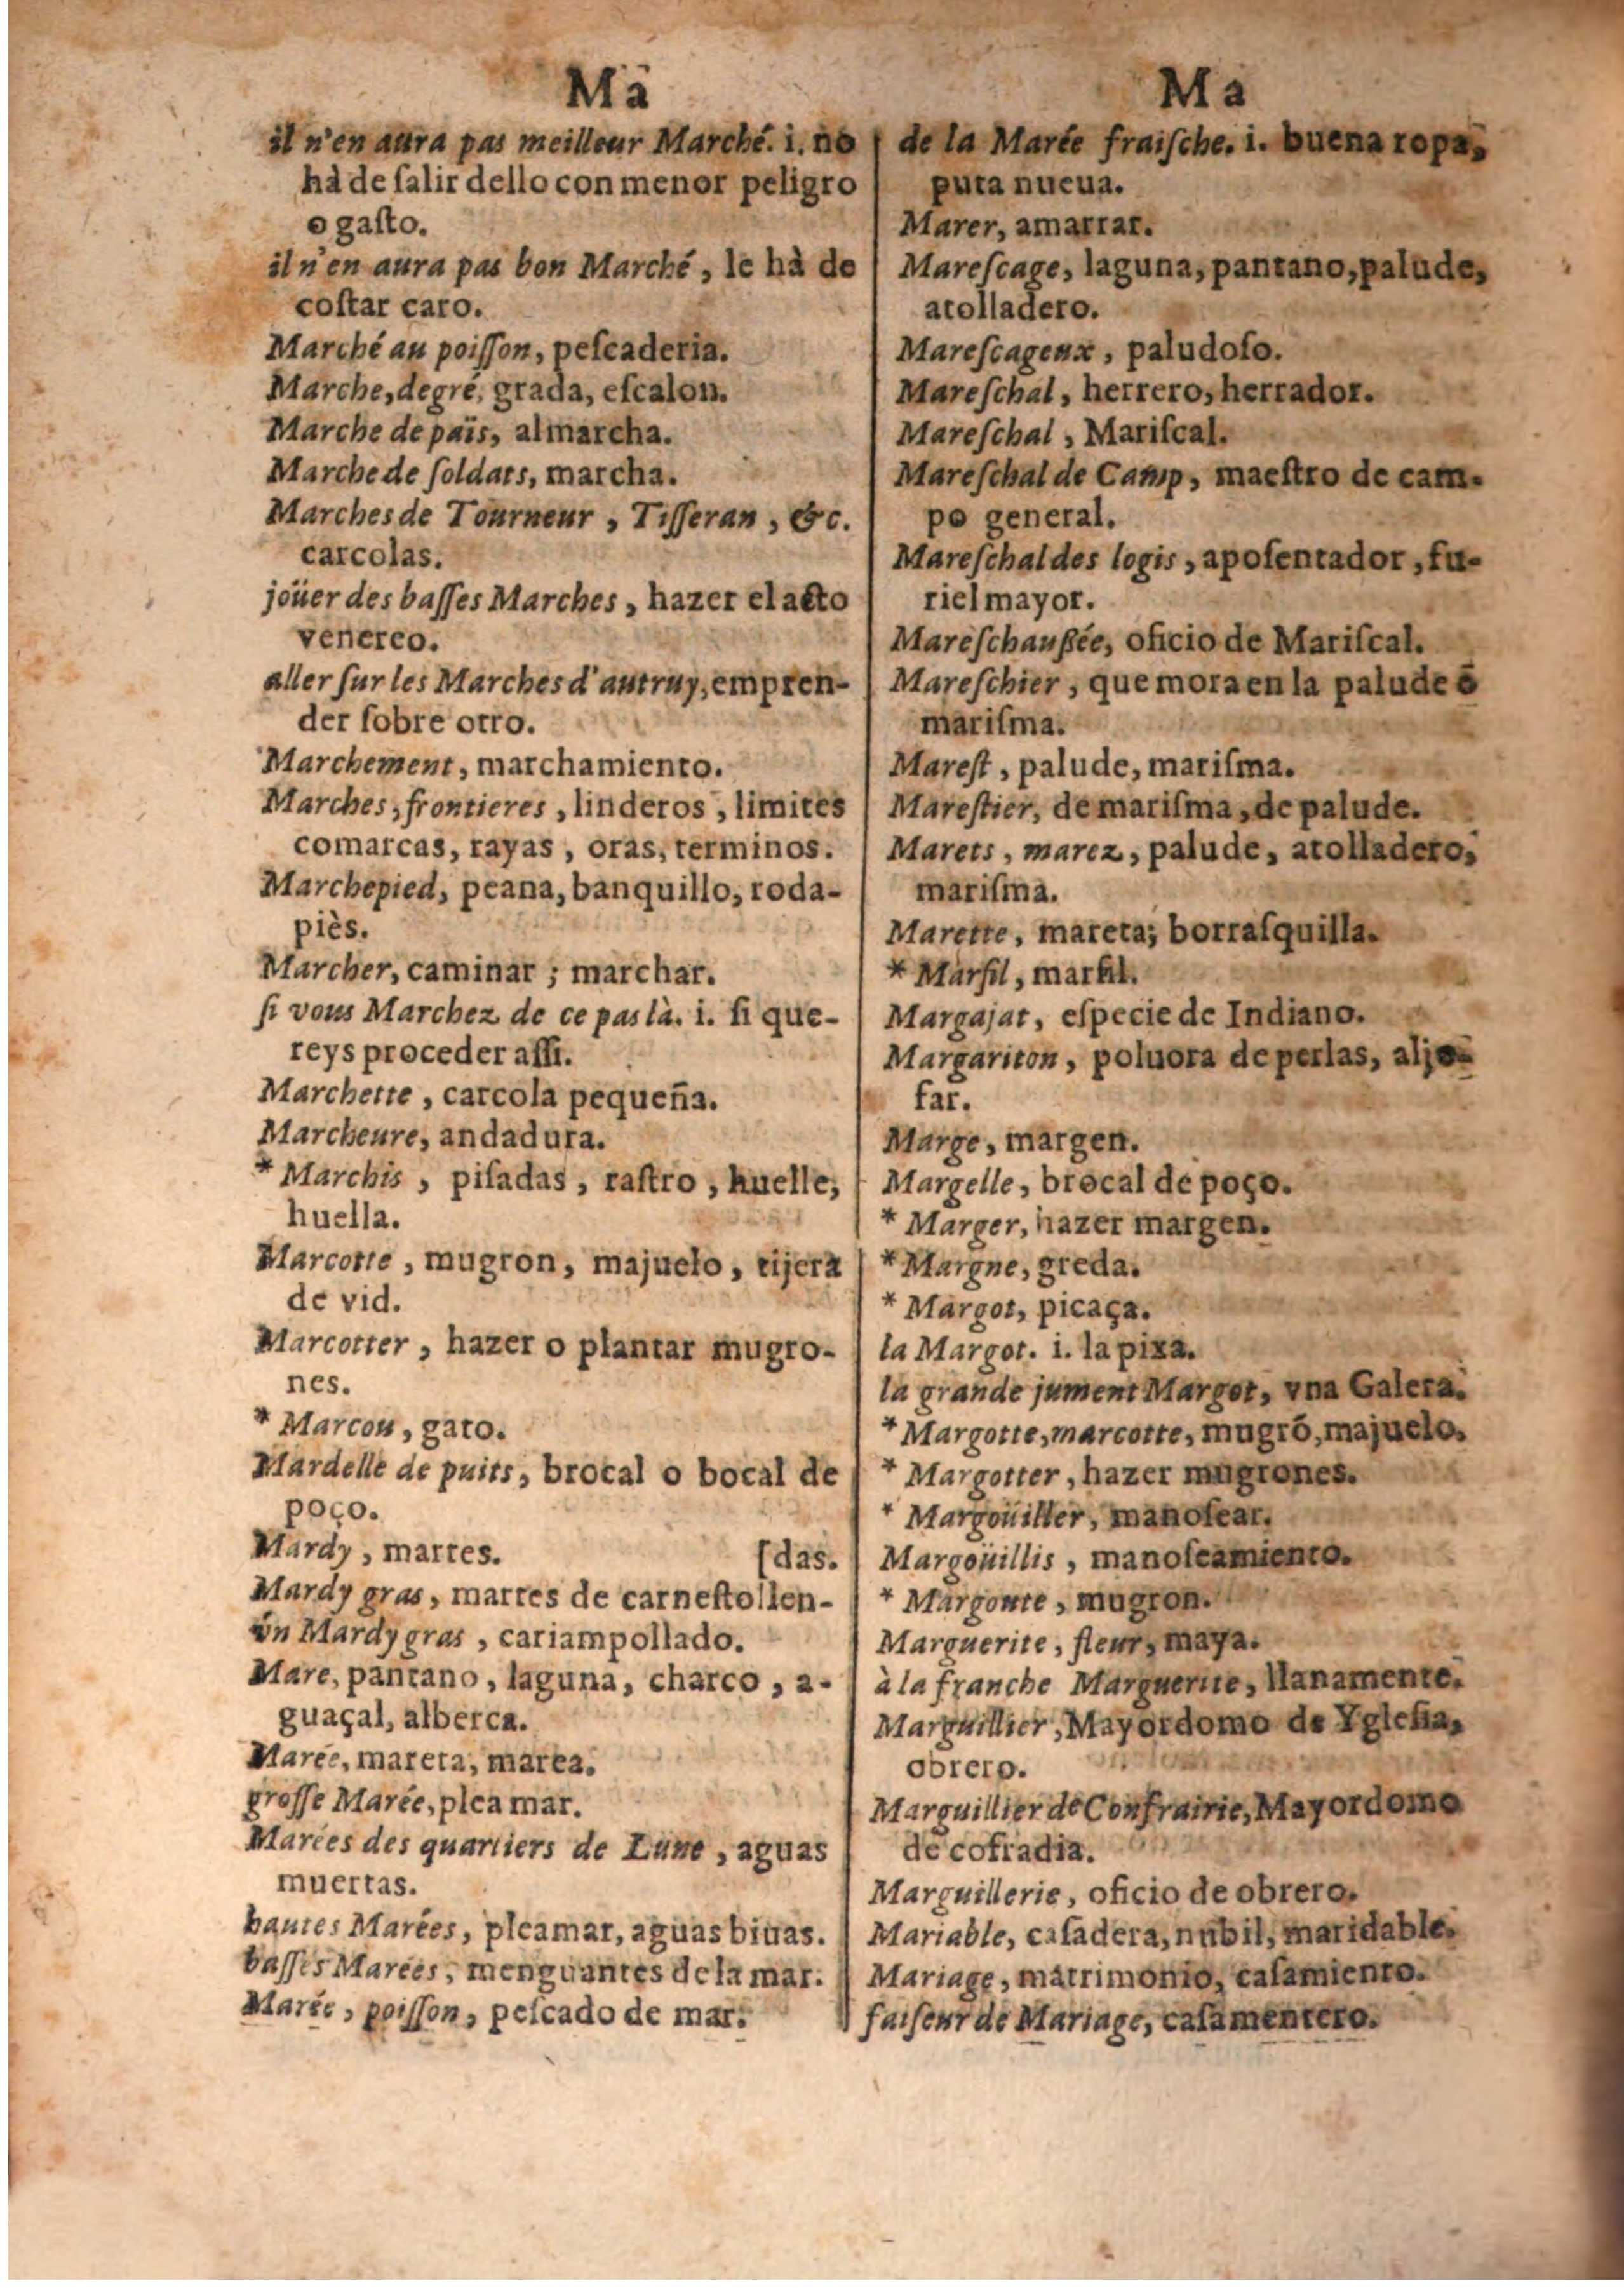 Ma
il n'en aura pas meilleur Marché. i. no
hà de ſalir dello con menor peligro
o gaſto.
il n'en aura pas bon Marché, le hà de
coſtar caro.
Marché au poiſſon, peſcaderia.
Marche, degré, grada, eſcalon.
Marche de païs, almarcha.
Marche de ſoldats, marcha.
Marches de Tourneur, Tiſſeran, &c.
carcolas.
joüer des baſſes Marches, hazer el acto
venereo.
aller ſur les Marches d'autruy, empren-
der ſobre otro.
Marchement, marchamiento.
Marches, frontieres, linderos, limites
comarcas, rayas, oras, terminos.
Marchepied, peana, banquillo, roda-
piès.
Marcher, caminar; marchar.
ſi vous Marchez de ce pas là. i. ſi que-
reys proceder aſſi.
Marchette, carcola pequeña.
Marcheure, andadura.
* Marchis, piſadas, raſtro, huelle,
huella.
Marcotte, mugron, majuelo, tijera
de vid.
Marcotter, hazer o plantar mugro-
nes.
* Marcou, gato.
Mardelle de puits, brocal o bocal de
poço.
Mardy, martes. [das.
Mardy gras, martes de carneſtollen-
un Mardy gras, cariampollado.
Mare, pantano, laguna, charco, a-
guaçal, alberca.
Marée, mareta, marea.
groſſe Marée, plea mar.
Marées des quartiers de Lune, aguas
muertas.
hautes Marées, pleamar, aguas biuas.
baſſes Marées, menguantes de la mar.
Marée, poiſſon, peſcado de mar.
Ma
de la Marée fraiſche. i. buena ropa,
puta nueua.
Marer, amarrar.
Mareſcage, laguna, pantano, palude,
atolladero.
Mareſcageux, paludoſo.
Mareſchal, herrero, herrador.
Mareſchal, Mariſcal.
Mareſchal de Camp, maeſtro de cam-
po general.
Mareſchal des logis, apoſentador, fu-
riel mayor.
Mareſchaußée, oficio de Mariſcal.
Mareſchier, que mora en la palude ò
mariſma.
Mareſt, palude, mariſma.
Mareſtier, de mariſma, de palude.
Marets, marez, palude, atolladero,
mariſma.
Marette, mareta; borraſquilla.
* Marfil, marfil.
Margajat, eſpecie de Indiano.
Margariton, poluora de perlas, aljo-
far.
Marge, margen.
Margelle, brocal de poço.
* Marger, hazer margen.
* Margne, greda.
* Margot, picaça.
la Margot. i. la pixa.
la grande jument Margot, vna Galera.
* Margotte, marcotte, mugrõ, majuelo.
* Margotter, hazer mugrones.
* Margoüiller, manoſear.
Margoüillis, manoſeamiento.
* Margoute, mugron.
Marguerite, fleur, maya.
à la franche Marguerite, llanamente.
Marguillier, Mayordomo de Ygleſia,
obrero.
Marguillier de Confrairie, Mayordomo
de cofradia.
Marguillerie, oficio de obrero.
Mariable, caſadera, nubil, maridable.
Mariage, matrimonio, caſamiento.
faiſeur de Mariage, caſamentero.